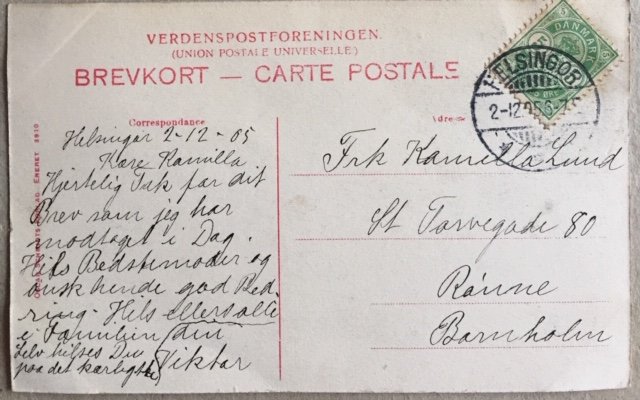 VERDENSPOSTFORENINGEN.
(UNION POSTALE UNIVERSELLE.)
BREVKORT — CARTE POSTALE
DANMARK
HELSINGØR
2-12.05
Correspondance
Helsingør 2-12-05
Kære Kamilla
Hjertelig Tak for dit
Brev som jeg har
modtaget i Dag.
Hils Bedstemoder og
ønsk hende god Bed-
ring. Hils ellers alle
i Familien
Selv hilses Du
paa det kærligste
din
Viktor
Frk Kamilla Lund
St Torvegade 80
Rønne
Bornholm
ENERET 3910